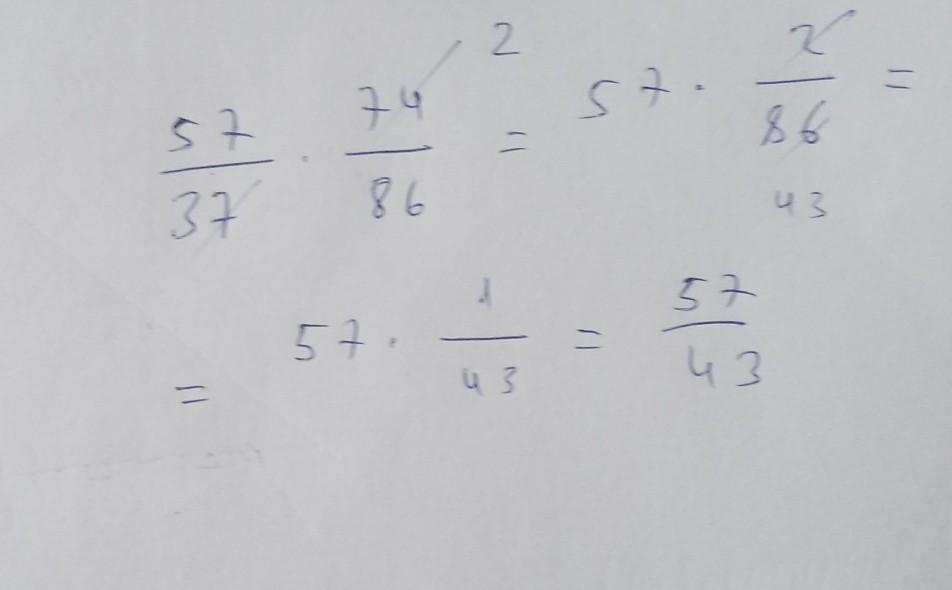 57/37 · 74/86 2 = 57 · 2/86 43 =
= 57 · 1/43 = 57/43